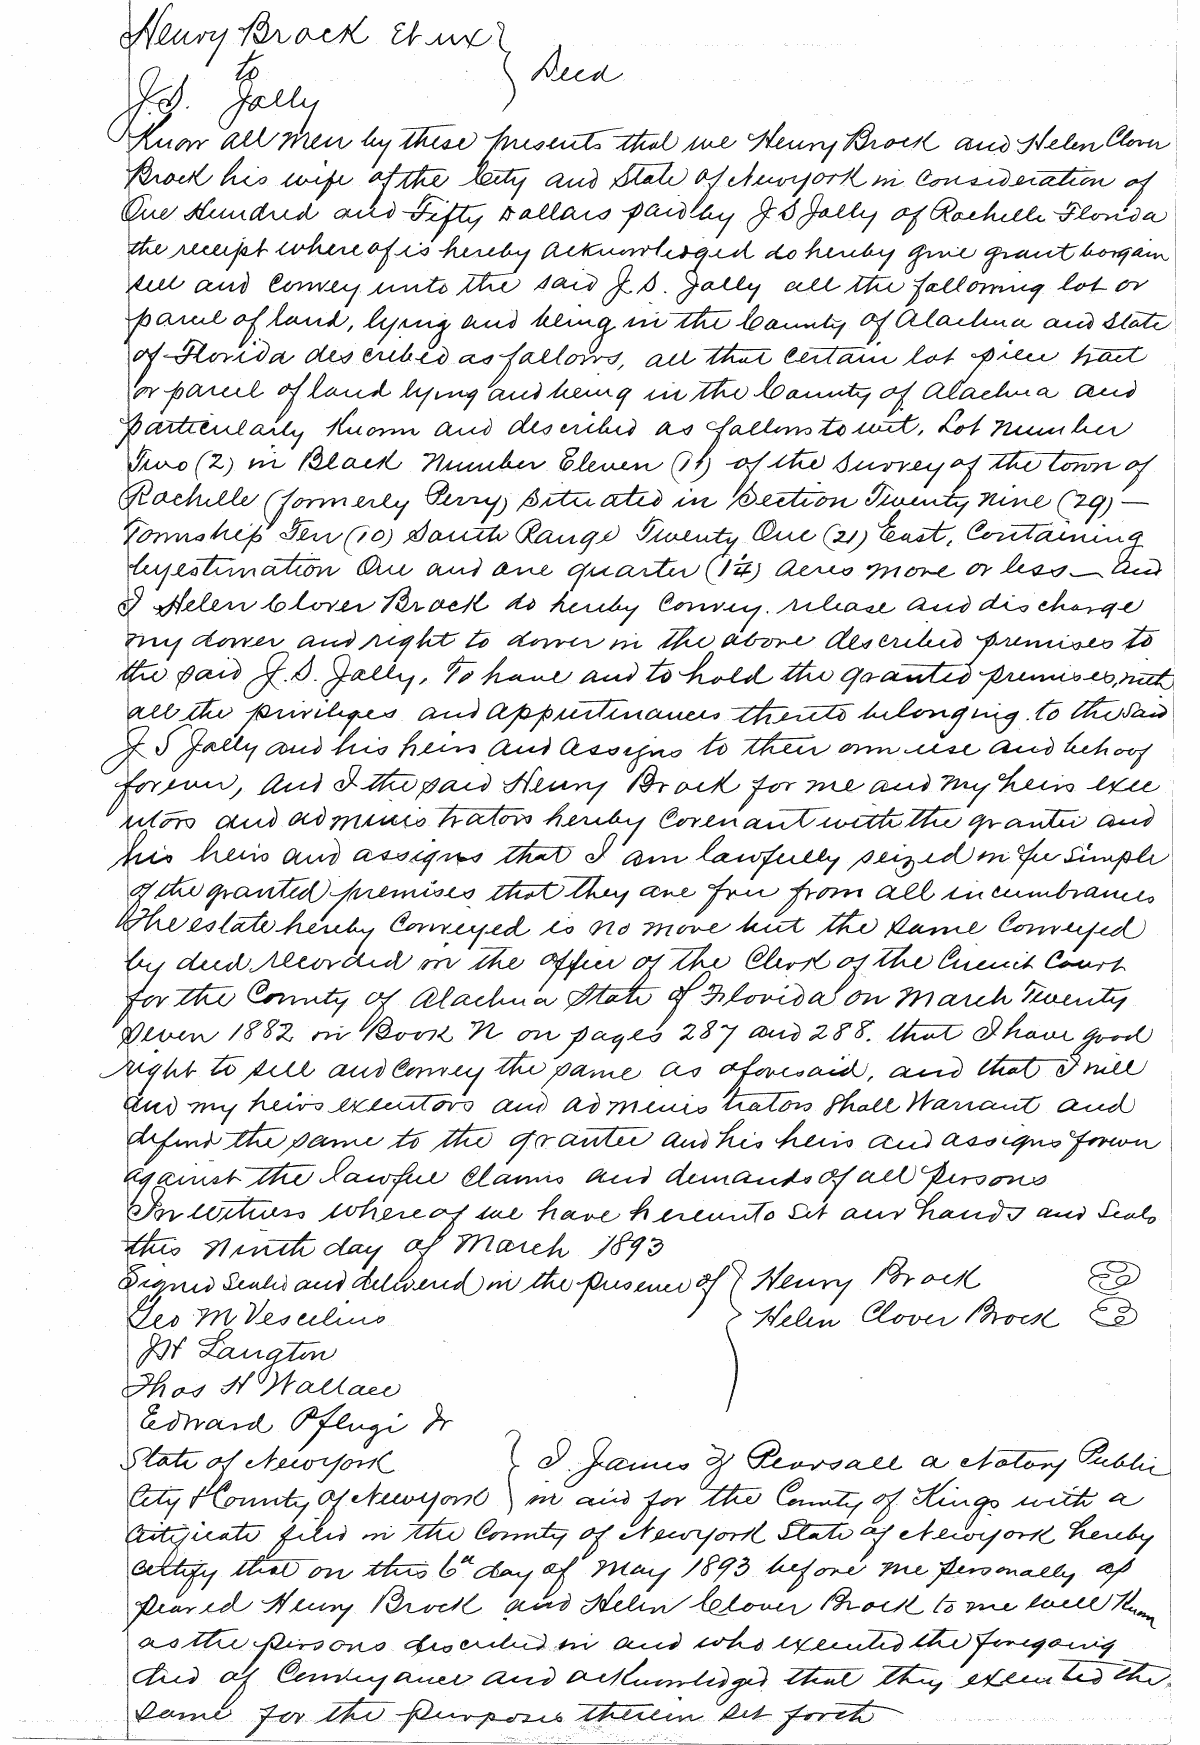 Henry Brock Et ux
to
Deed
J.S. Jolly
Know all men by these presents that we Henry Brock and Helen Clover
Brock his wife of the City and State of Newyork in consideration of
One Hundred and Fifty Dollars paid by J S Jolly of Rochelle Florida
the receipt where of is hereby acknowledged do hereby give grant bargain
sell and convey unto the said J. S. Jolly all the following lot or
parcel of land, lying and being in the County of Alachua and State
of Florida described as follows, all that certain lot piece tract
or parcel of land lying and being in the County of Alachua and
particularly Known and described as follows to wit. Lot Number
Two (2) in Block Number Eleven (11) of the Survey of the town of
Rochelle (formerly Perry) Situated in Section Twenty Nine (29) —
Township Ten (10) South Range Twenty One (21) East, Containing
by estimation One and one quarter (1¼) acres more or less — and
I Helen Clover Brock do hereby convey. release and discharge
my dower and right to dower in the above described premises to
the said J. S. Jolly. To have and to hold the granted premises, with
all the privileges and appurtenances thereto belonging. to the Said
J S Jolly and his heirs and assigns to their own use and behoof
forever, And I the said Henry Brock for me and my heirs exec
utors and administrators hereby covenant with the grantee and
his heirs and assigns that I am lawfully seized in fee Simple
of the granted premises that they are free from all incumbrances
The estate hereby Conveyed is no more but the same Conveyed
by deed recorded in the office of the Clerk of the Circuit Court
for the County of Alachua State of Florida on March Twenty
Seven 1882 in Book N on pages 287 and 288. that I have good
right to sell and convey the same as aforesaid, and that I will
and my heirs executors and administrators shall Warrant and
defend the same to the grantee and his heirs and assigns forever
against the lawful claims and demands of all persons
In witness whereof we have hereunto Set our hands and Seals
this Ninth day of March 1893
Signed Sealed and delivered in the presence of Henry Brock
Geo M Vescelius Helen Clover Brock
JH Langton
Thos H Wallace
Edward Pflugi Jr
State of Newyork
City & County of Newyork
I James Pearsall a Notary Public
in and for the County of Kings with a
Certificate filed in the County of Newyork State of Newyork hereby
certify that on this 6th day of May 1893 before me personally ap
peared Henry Brock and Helen Clover Brock to me well Known
as the persons described in and who executed the foregoing
deed of Conveyance and acknowledged that they executed the
same for the purposes therein set forth